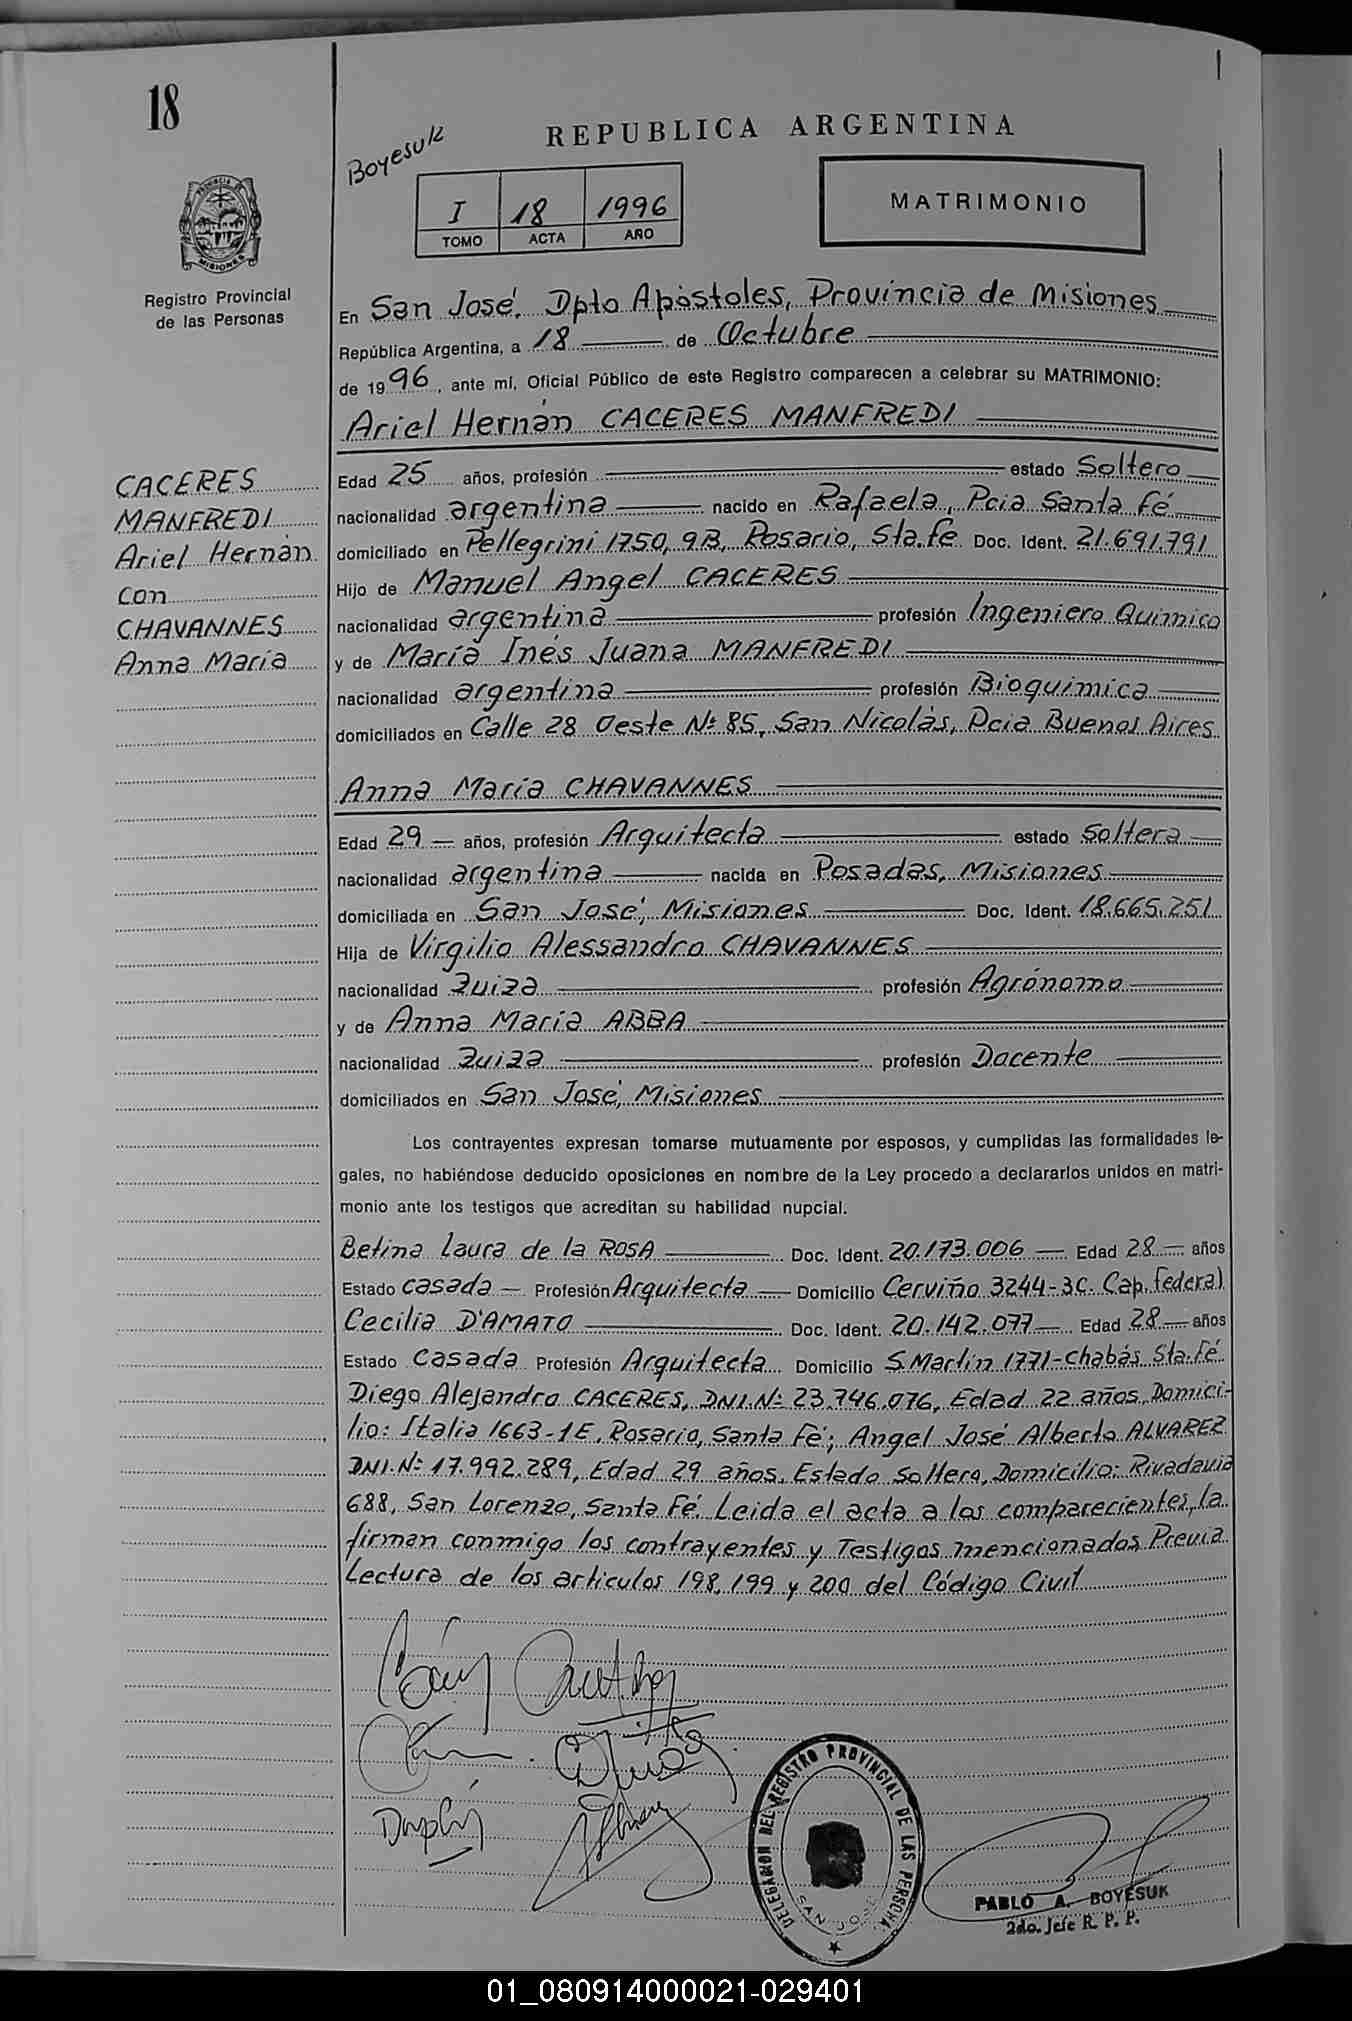 18
Boyesuk
REPUBLICA ARGENTINA
I 18 1996
TOMO ACTA AÑO
MATRIMONIO
PROVINCIA DE
MISIONES
Registro Provincial
de las Personas
En San José, Dpto Apóstoles, Provincia de Misiones
República Argentina, a 18 de Octubre
de 1996, ante mí, Oficial Público de este Registro comparecen a celebrar su MATRIMONIO:
Ariel Hernán CACERES MANFREDI
CACERES
MANFREDI
Ariel Hernán
con
CHAVANNES
Anna María
Edad 25 años, profesión estado Soltero
nacionalidad argentina nacido en Rafaela, Pcia Santa Fé
domiciliado en Pellegrini 1750, 9B, Rosario, Sta.fe Doc. Ident. 21.691.791
Hijo de Manuel Angel CACERES
nacionalidad argentina profesión Ingeniero Químico
y de María Inés Juana MANFREDI
nacionalidad argentina profesión Bioquímica
domiciliados en Calle 28 Oeste Nº 85, San Nicolás, Pcia Buenos Aires
Anna María CHAVANNES
Edad 29 años, profesión Arquitecta estado Soltera
nacionalidad argentina nacida en Posadas, Misiones
domiciliada en San José, Misiones Doc. Ident. 18.665.251
Hija de Virgilio Alessandro CHAVANNES
nacionalidad Zuiza profesión Agrónomo
y de Anna María ABBA
nacionalidad Zuiza profesión Docente
domiciliados en San José, Misiones
Los contrayentes expresan tomarse mutuamente por esposos, y cumplidas las formalidades le-
gales, no habiéndose deducido oposiciones en nombre de la Ley procedo a declararlos unidos en matri-
monio ante los testigos que acreditan su habilidad nupcial.
Betina Laura de la ROSA Doc. Ident. 20.173.006 Edad 28 años
Estado casada Profesión Arquitecta Domicilio Cerviño 3244-3C. Cap. federal
Cecilia D'AMATO Doc. Ident. 20.142.077 Edad 28 años
Estado casada Profesión Arquitecta Domicilio S. Martín 1771-Chabás Sta.Fé
Diego Alejandro CACERES, DNI.Nº 23.746.076, Edad 22 años, Domici-
lio: Italia 1663-1E, Rosario, Santa Fé; Angel José Alberto ALVAREZ
DNI.Nº 17.992.289, Edad 29 años, Estado Soltero, Domicilio: Rivadavia
688, San Lorenzo, Santa Fé. Leida el acta a los comparecientes, la
firman conmigo los contrayentes y Testigos mencionados, Previa
Lectura de los artículos 198, 199 y 200 del Código Civil
DELEGACION DEL REGISTRO PROVINCIAL DE LAS PERSONA
SAN JOSE
PABLO A. BOYESUK
2do. Jefe R. P. P.
01_080914000021-029401